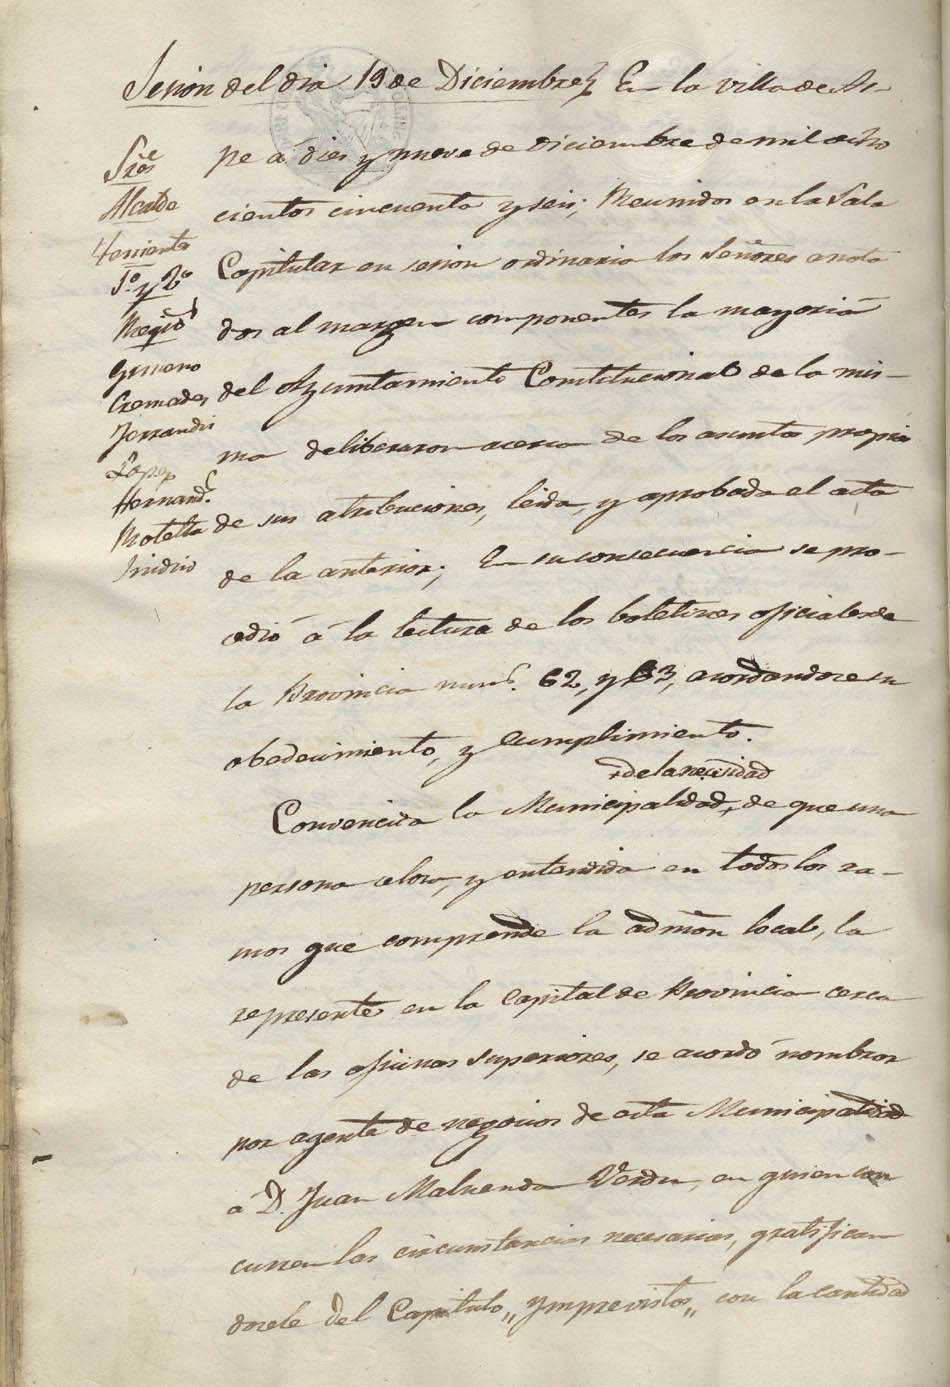 Sesion del dia 19 de Diciembre} En la villa de As-
pe á dies y nueve de Diciembre de mil ocho
cientos cincuenta y seis; Reunidos en la Sala
Capitular en sesion ordinaria los Señores anota
dos al margen componentes la mayoria
del Ayuntamiento Constitucional de la mis-
ma deliberaron acerca de los asuntos propios
de sus atribuciones, leida, y aprobada el acta
de la anterior; En su consecuencia se pro-
cedió á la lectura de los boletines oficiales de
la Provincia nums. 62, y 63, acordandose su
obedecimiento, y cumplimiento.
+ de la necesidad
Convencida la Municipalidad, + de que una
persona celosa, y entendida en todos los ra-
mos que comprende la admon local, la
represente en la Capital de Provincia cerca
de las oficinas superiores, se acordó nombrar
por agente de negocios de esta Municipalidad
á D. Juan Maluenda Verdu, en quien con
curren las circunstancias necesarias, gratifican
dosele del Capitulo „ Ymprevistos „ con la cantidad
Sres
Alcalde
Teniente
1º y 2º
Regid.s
Guerrero
Cremades
Ferrandis
Lopez
Hernandz.
Motella
Sindico